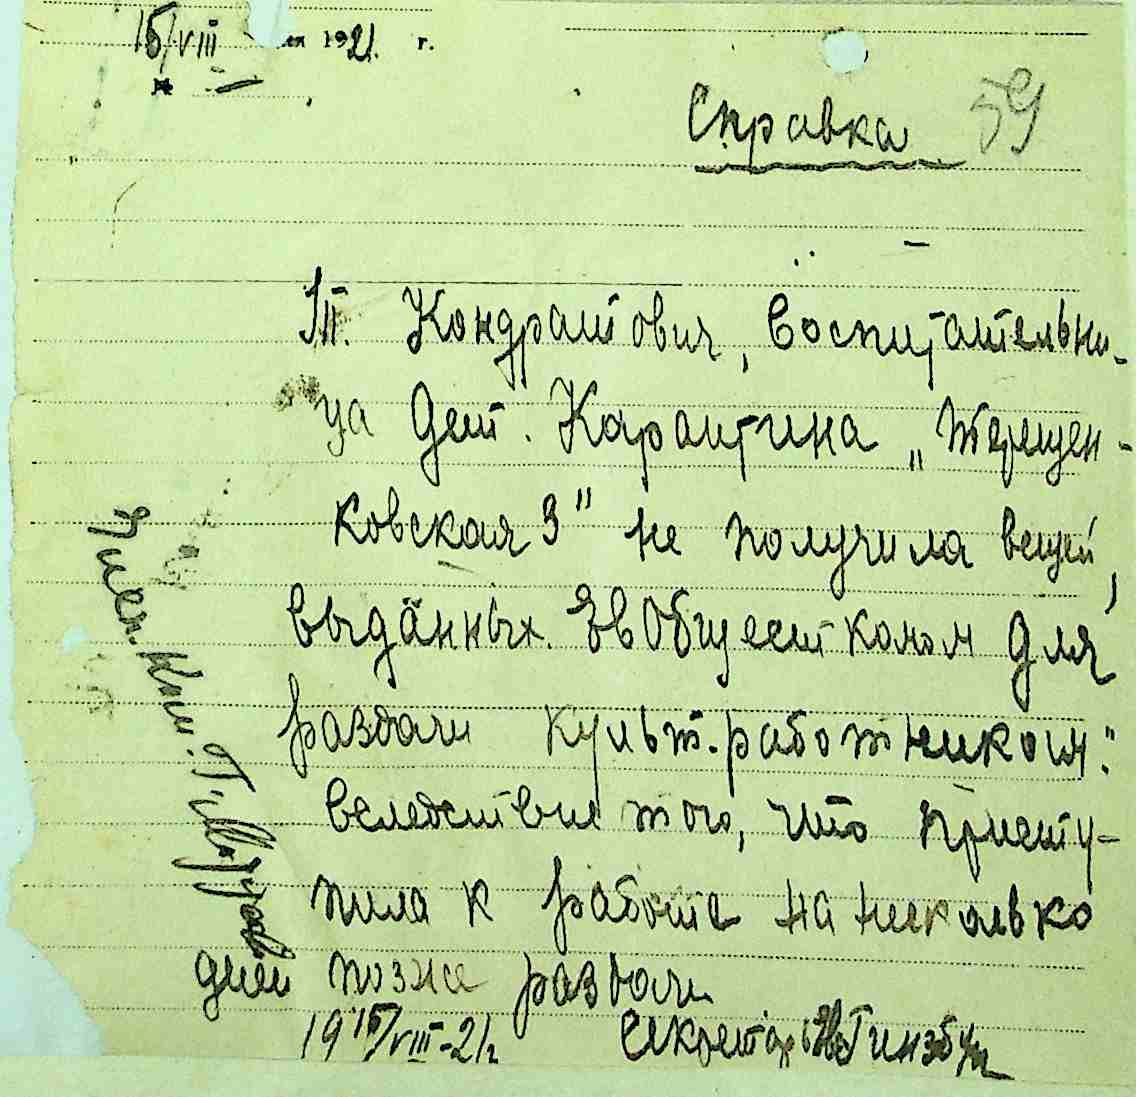 15/VIII 1921 г.
№ 1
Справка 59
Тт. Кондратович, воспитательни-
ца Дет. Карантина „Терещен-
ковская 3" не получила вещей,
выданных Евобщесткомом для
раздачи культ-работникам:
вследствие того, что присту-
пила к работе на несколько
дней позже раздачи
19 15/VIII-21 г. Секретарь Гинзбург
Член. Ком.